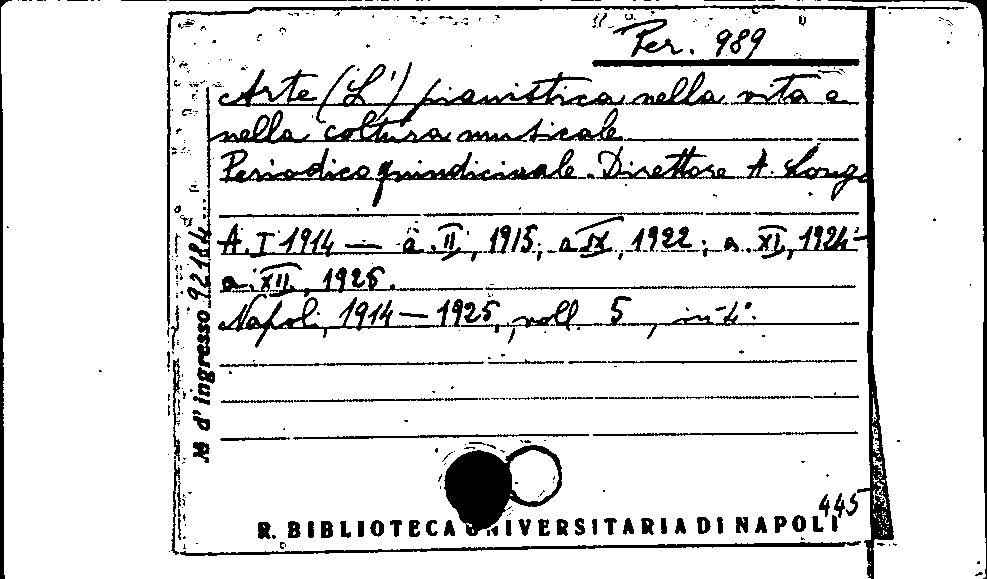 Per. 989
Arte (L') pianistica nella vita e
nella coltura musicale
Periodico quindicinale. Direttore A. Longo
A. I 1914 — a. II, 1915; a IX, 1922; a. XI, 1924-
a. XII, 1925.
Napoli, 1914 — 1925, voll. 5, in-4°.
N° d'ingresso 92184
445
R. BIBLIOTECA UNIVERSITARIA DI NAPOLI